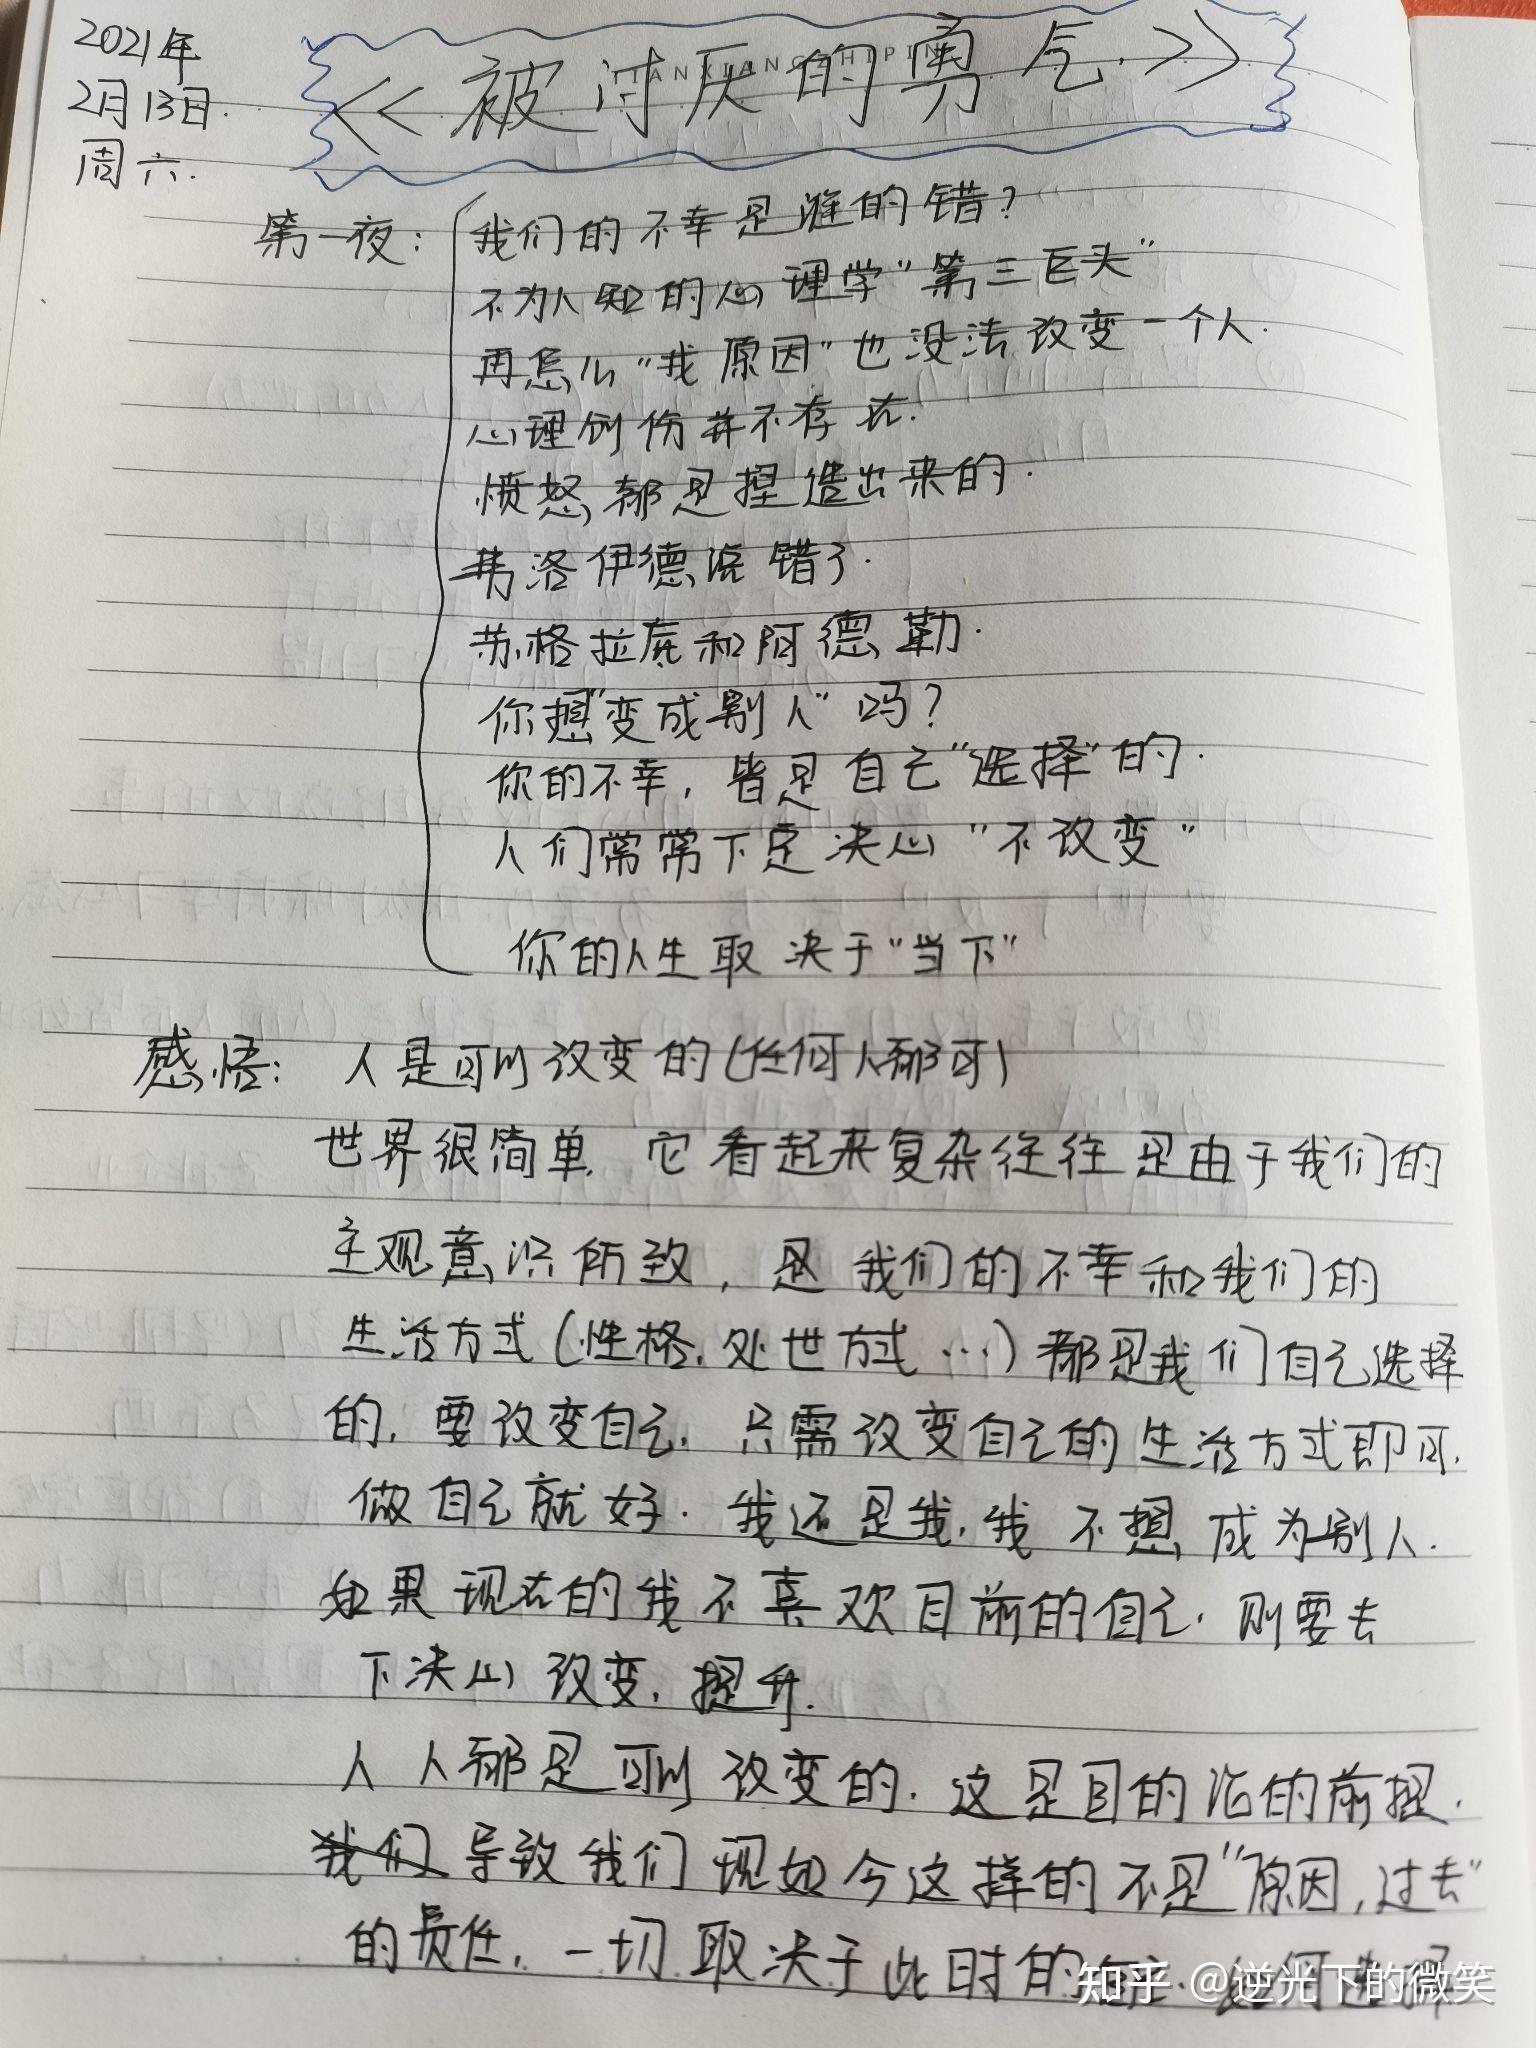 2021年
2月13日.
周六.
<<被讨厌的勇气.>>
TIANXIANGZHIPIN
第一夜:
我们的不幸是谁的错?
不为人知的心理学"第三巨头"
再怎么"找原因"也没法改变一个人.
心理创伤并不存在.
愤怒都是捏造出来的.
弗洛伊德说错了.
苏格拉底和阿德勒.
你想"变成别人"吗?
你的不幸,皆是自己"选择"的.
人们常常下定决心"不改变"
你的人生取决于"当下"
感悟: 人是可以改变的(任何人都可)
世界很简单,它看起来复杂往往是由于我们的
主观意识所致,是我们的不幸和我们的
生活方式(性格,处世方式…)都是我们自己选择
的,要改变自己,只需改变自己的生活方式即可.
做自己就好.我还是我,我不想成为别人.
如果现在的我不喜欢目前的自己,则要去
下决心改变,提升.
人人都是可以改变的.这是目的论的前提.
导致我们现如今这样的不是"原因,过去"
的责任,一切取决于此时的
知乎 @逆光下的微笑